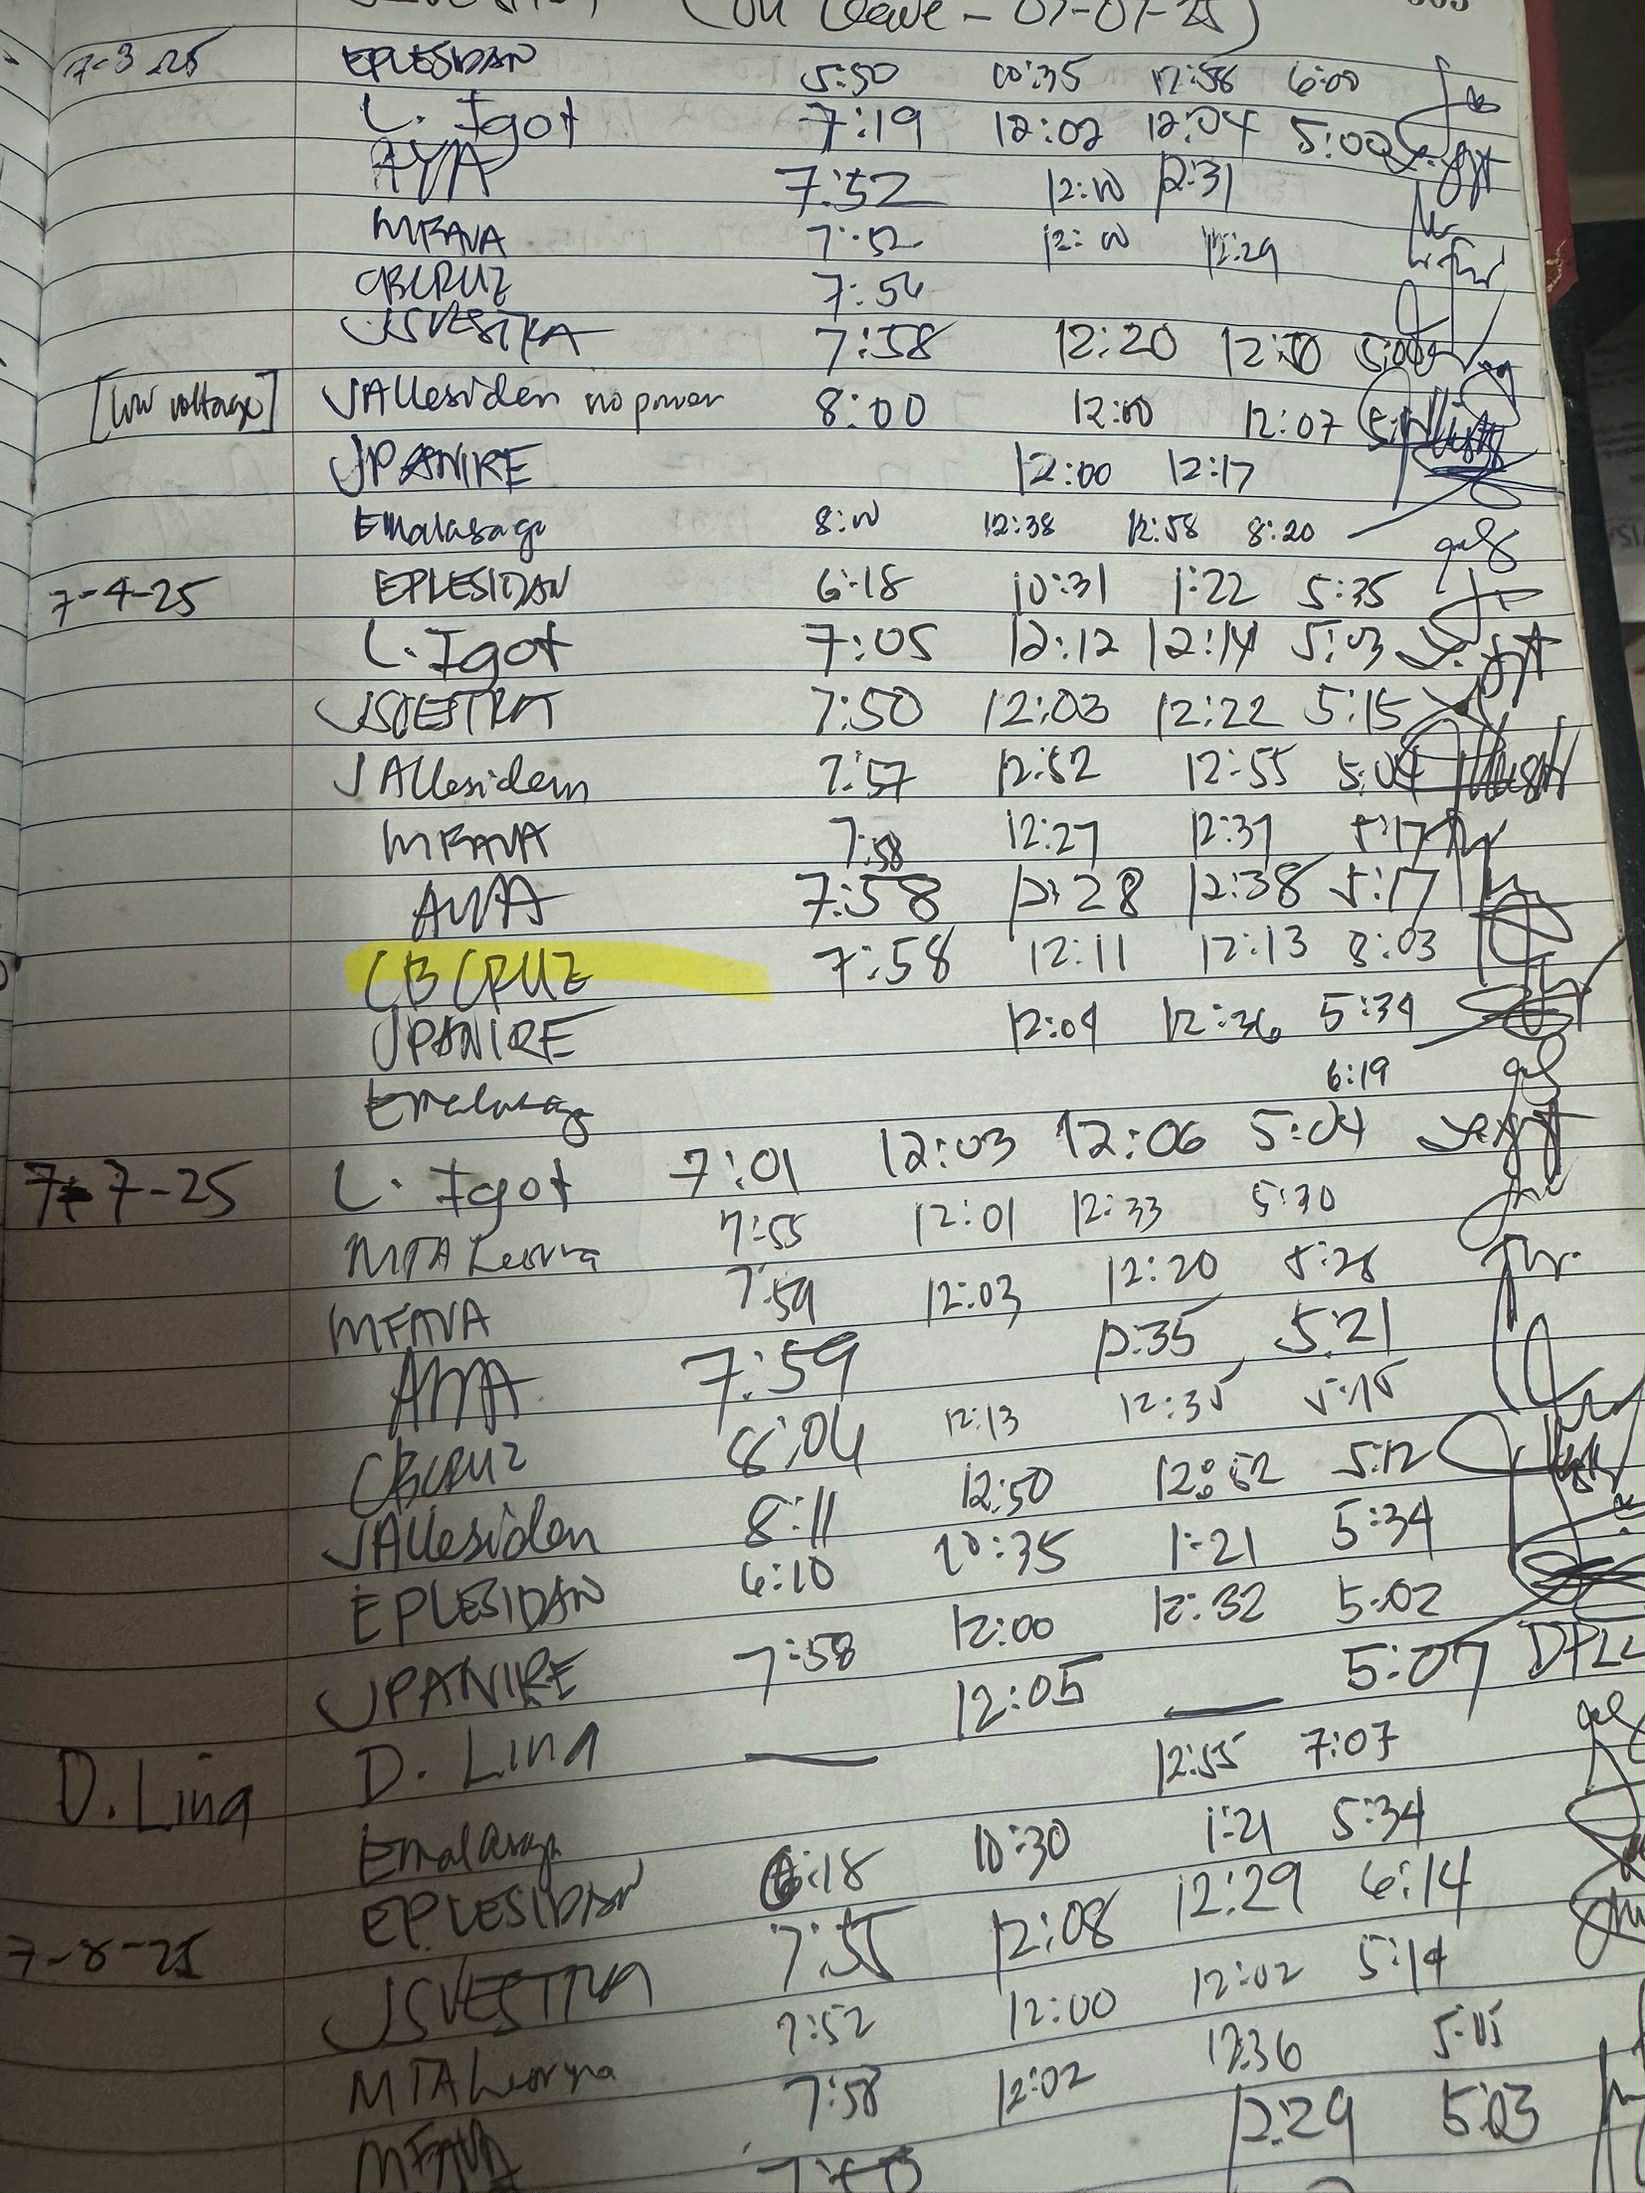 (on leave - 07-07-25)
7-3-25 EPLESIDAN 5:50 10:35 12:58 6:00
L. Igot 7:19 12:02 12:04 5:00
AYA 7:52 12:00 12:31
MFAVA 7:52 12:00 12:29
CBCRUZ 7:56
JSVESTRA 7:58 12:20 12:50 5:00
[low voltage] JAllesiden no power 8:00 12:00 12:07
JPANIRE 12:00 12:17
Emalasaga 8:00 12:38 12:58 8:20
7-4-25 EPLESIDAN 6:18 10:31 1:22 5:35
L. Igot 7:05 12:12 12:14 5:03
JSVESTRA 7:50 12:03 12:22 5:15
JAllesidem 7:57 12:52 12:55 5:04
MFAVA 7:58 12:27 12:37 5:17
AYA 7:58 12:28 12:38 5:17
CBCRUZ 7:58 12:11 12:13 8:03
JPANIRE 12:04 12:36 5:34
Emalasaga 6:19
7-7-25 L. Igot 7:01 12:03 12:06 5:04
MTA 7:55 12:01 12:33 5:30
MFAVA 7:59 12:03 12:20 5:28
AYA 7:59 12:35 5:21
CBCRUZ 8:04 12:13 12:35 5:15
JAllesiden 8:11 12:50 12:52 5:12
EPLESIDAN 6:10 10:35 1:21 5:34
JPANIRE 7:58 12:00 12:32 5:02
D. Lina D. Lina — 12:05 — 5:07
Emalasaga 12:55 7:07
EPLESIDAN 6:18 10:30 1:21 5:34
7-8-25 JSVESTRA 7:55 12:08 12:29 6:14
MTA 7:52 12:00 12:02 5:14
MFAVA 7:58 12:02 12:36 5:05
12:29 5:03